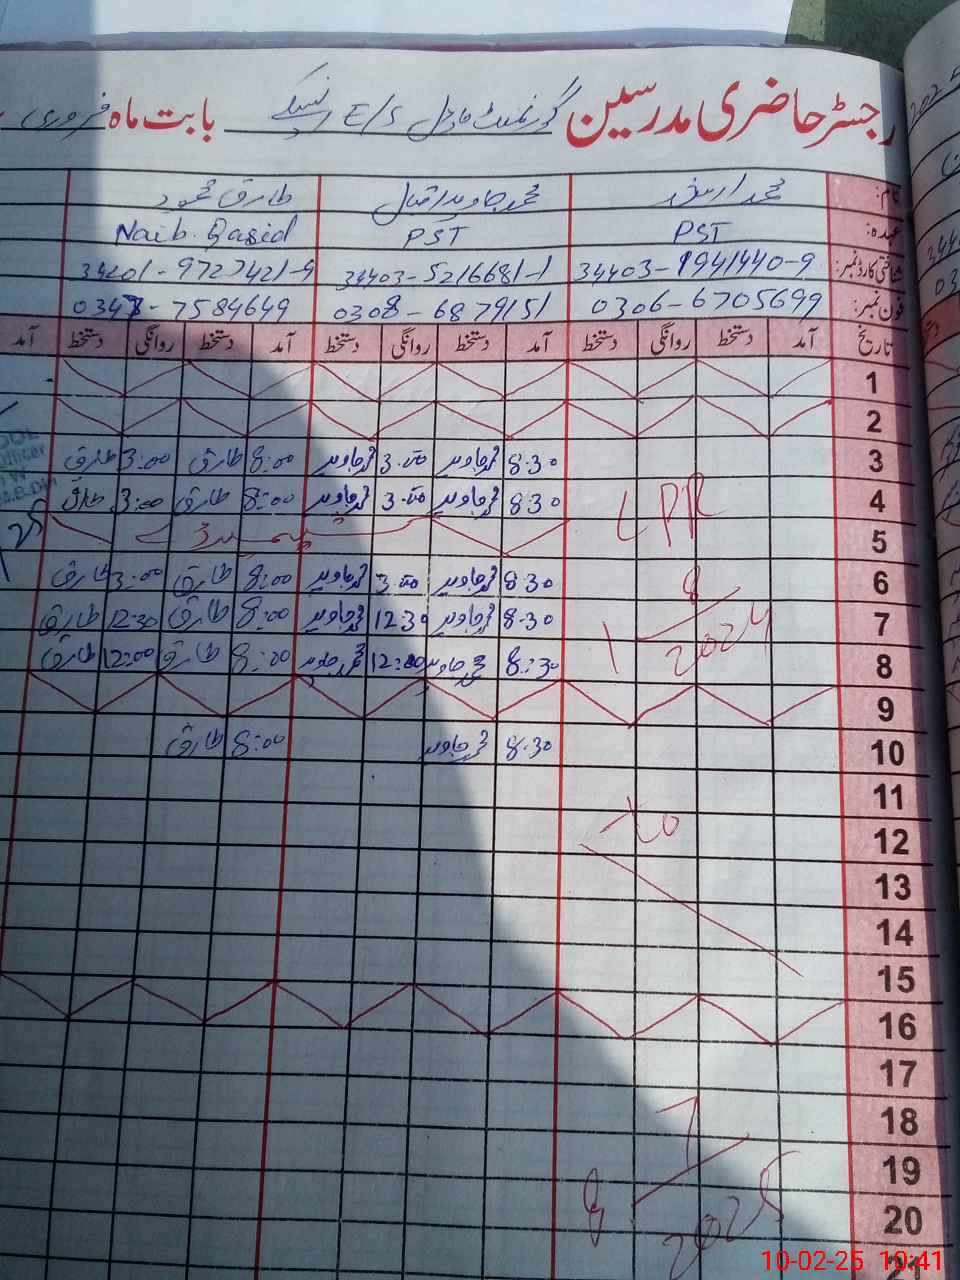 رجسٹر حاضری مدرسین گورنمنٹ ماڈل E/S بابت ماہ فروری
نام: محمد ارشد محمد جاوید اقبال طارق محمود
عہدہ: PST PST Naib Qasid
شناختی کارڈ نمبر: 34403-1941440-9 34403-5216681-1 34201-9727421-9
فون نمبر: 0306-6705699 0308-6879151 0347-7584649
تاریخ آمد دستخط روانگی دستخط آمد دستخط روانگی دستخط آمد دستخط روانگی دستخط آمد
1
2
3 8:30 محمد جاوید 3:00 محمد جاوید 8:00 طارق 3:00 طارق
4 LPR 8:30 محمد جاوید 3:00 محمد جاوید 8:00 طارق 3:00 طارق
5
6 8:30 محمد جاوید 3:00 محمد جاوید 8:00 طارق 3:00 طارق
7 1 8/2024 8:30 محمد جاوید 12:30 محمد جاوید 8:00 طارق 12:30 طارق
8 8:30 محمد جاوید 12:00 محمد جاوید 8:00 طارق 12:00 طارق
9
10 8:30 محمد جاوید 8:00 طارق
11
12 to
13
14
15
16
17
18
19 7
20 2025
21
10-02-25 10:41